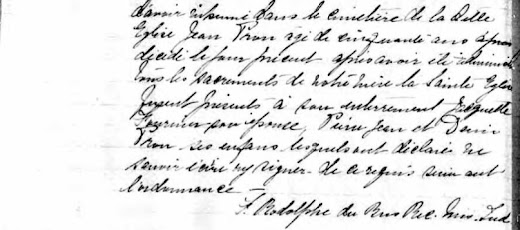 d'avoir inhumé dans le cimetière de la dite
Eglise Jean Pron agé de cinquante ans
décédé le jour présent apres avoir été
tous les sacrements de notre mère la Sainte Eglise
furent présents à son enterrement Jacquette
Fournier son épouse, Pierre Jean et Denis
Pron ses enfans lesquels ont déclaré ne
savoir écrire ny signer de ce requis suivant
l'ordonnance —
F. Rodolphe du Bus Rec. Miss.